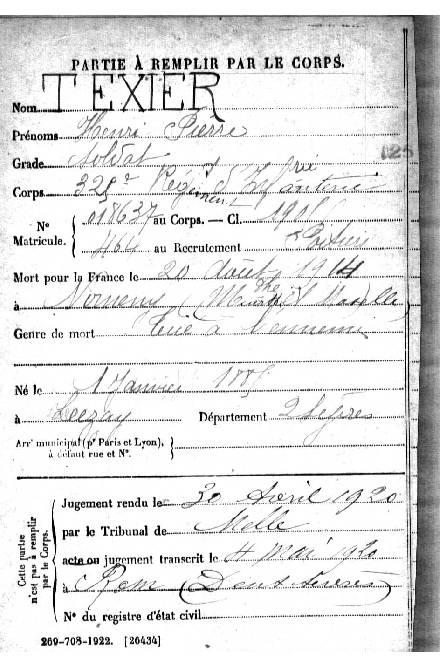 PARTIE À REMPLIR PAR LE CORPS.
Nom TEXIER
Prénoms Henri Pierre
Grade Soldat
Corps 325e Régiment d'Infanterie
N° Matricule. 018637 au Corps. — Cl. 1905
464 au Recrutement Poitiers
Mort pour la France le 20 août 1914
à Nomeny (Meurthe et Moselle)
Genre de mort Tué à l'ennemi
Né le 1 Janvier 1885
à Lezay Département 2 Sèvres
Arrt municipal (pr Paris et Lyon),
à défaut rue et N°.
Cette partie n'est pas à remplir par le Corps.
Jugement rendu le 30 Avril 1920
par le Tribunal de Melle
acte ou jugement transcrit le 4 mai 1920
à Rom (Deux Sèvres)
N° du registre d'état civil
269-708-1922. [26434]